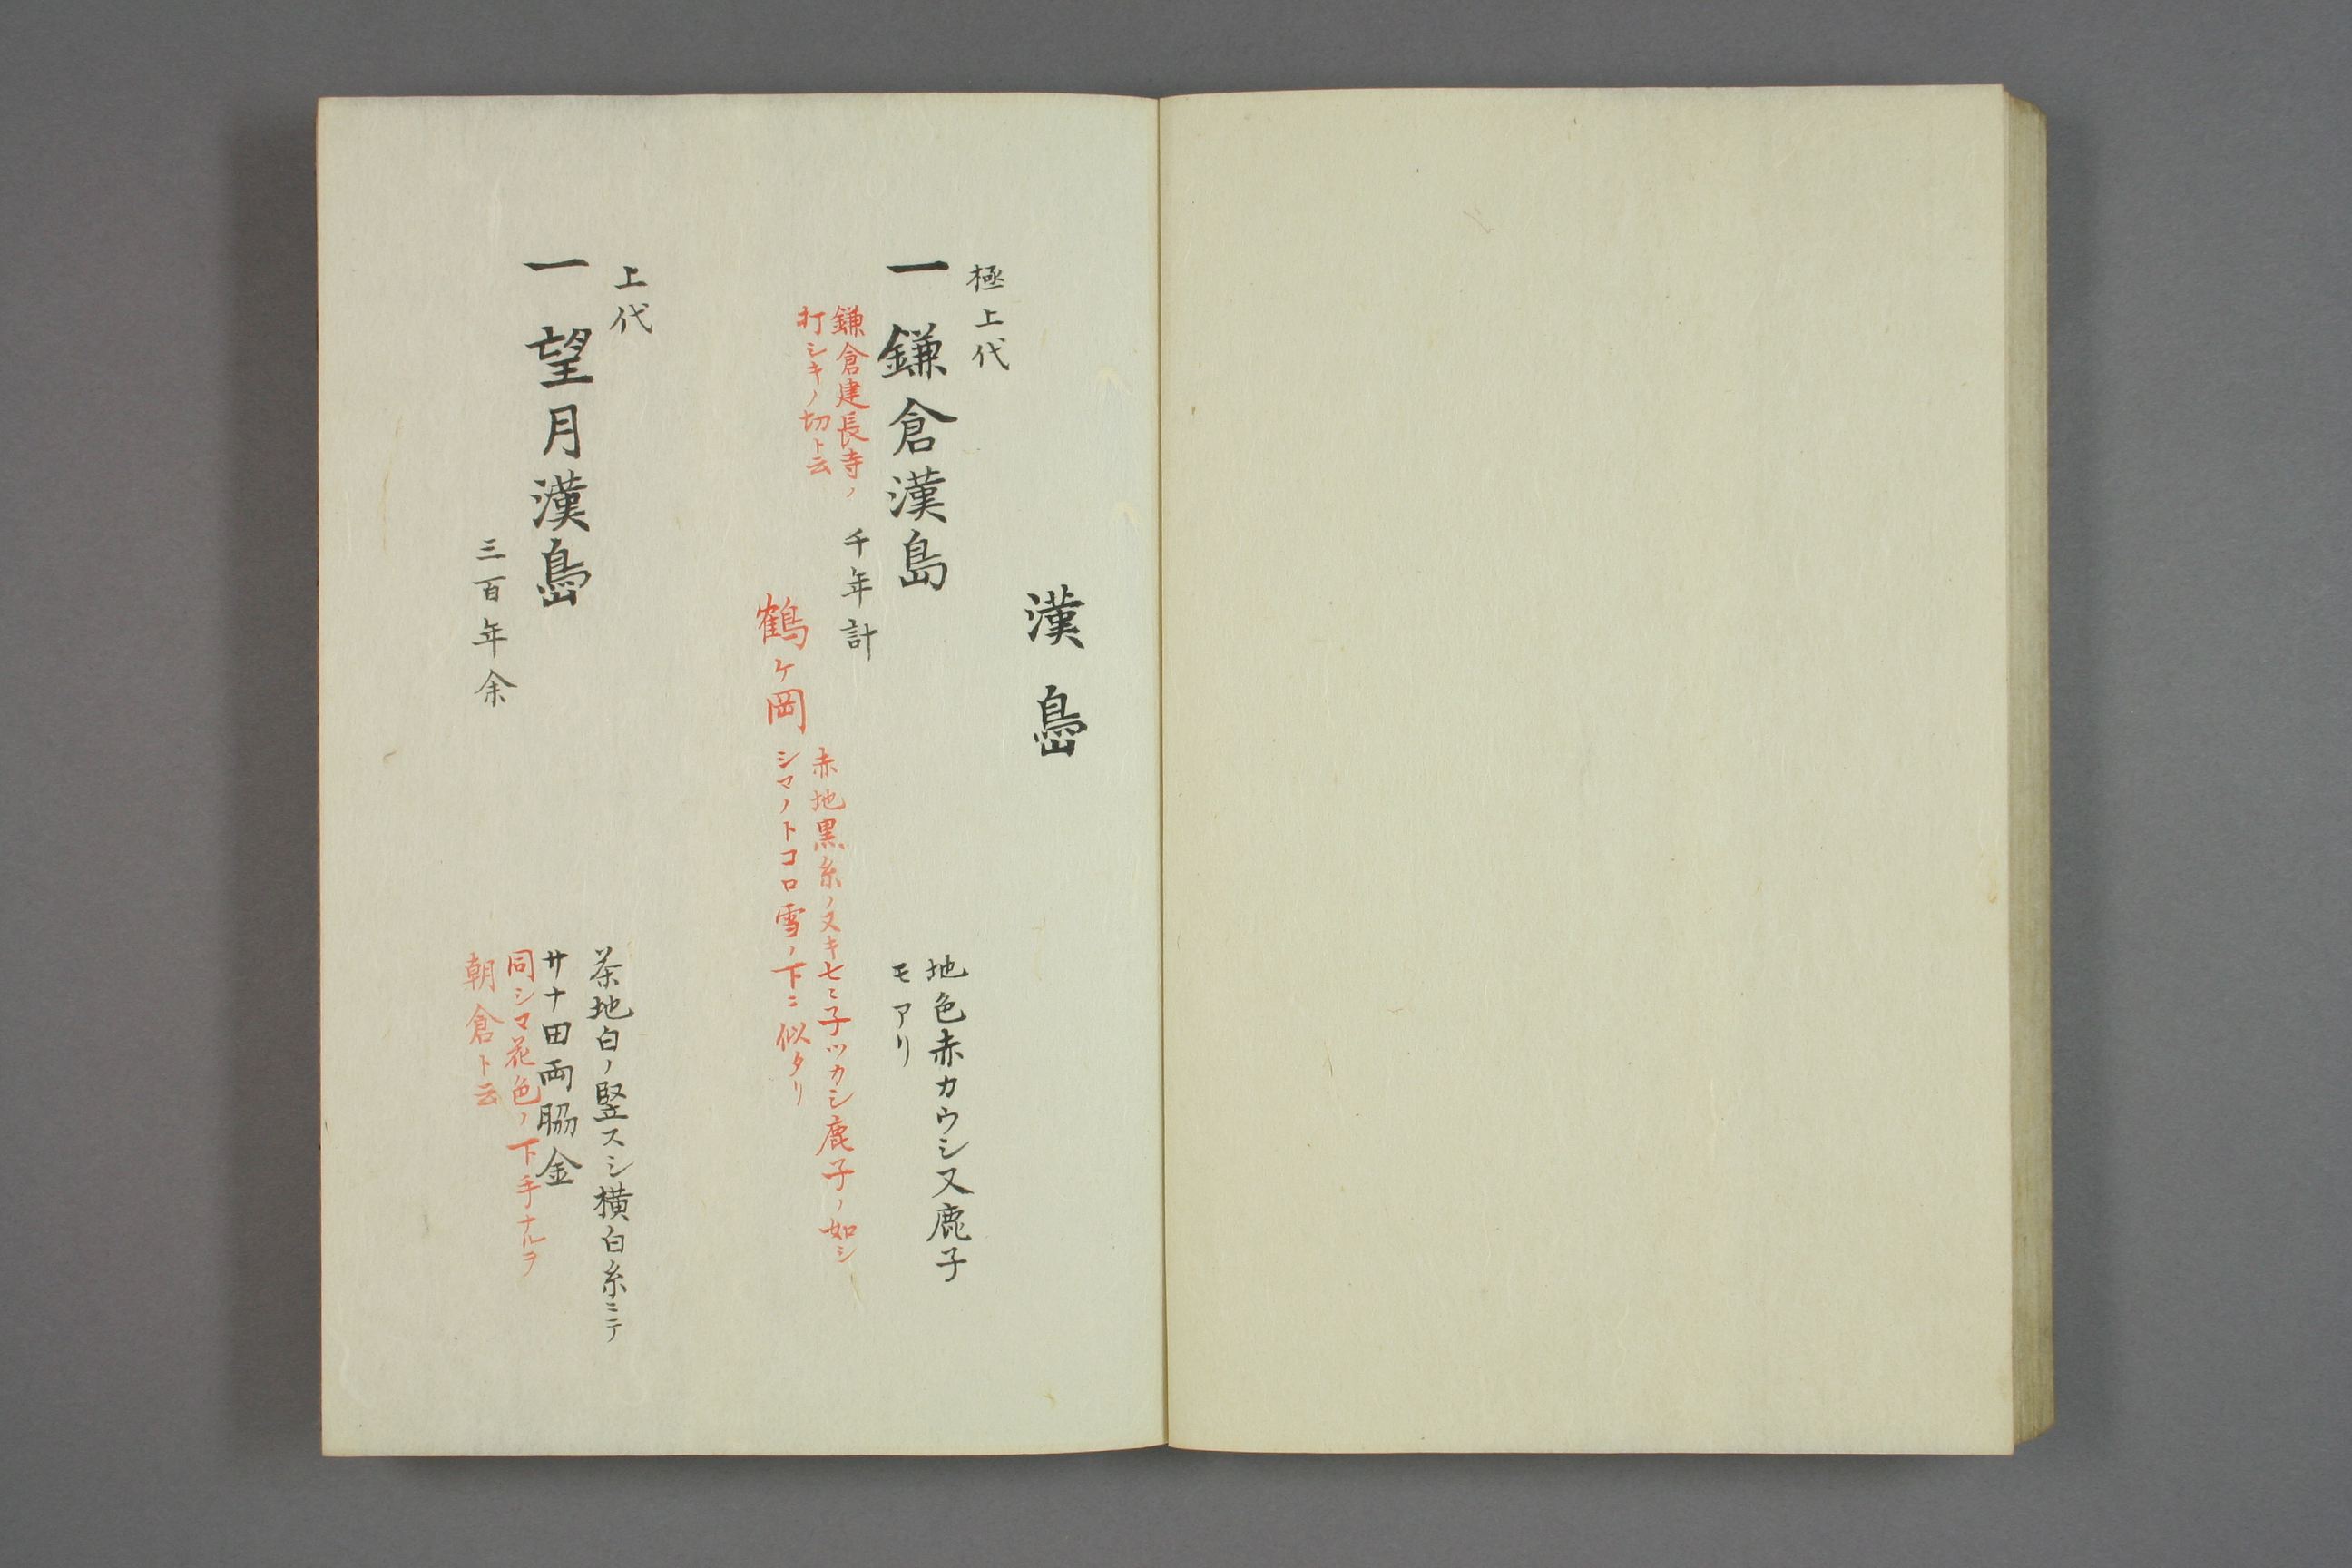 漢嶋
極上代
一鎌倉漢島
地色赤カウシ又鹿子
モアリ
千年計
鎌倉建長寺ノ
打シキノ切ト云
鶴ケ岡
赤地黒糸ノヌキ七ヽ子ツカシ鹿子ノ如シ
シマノトコロ雪ノ下ニ似タリ
上代
一望月漢嶋
三百年余
茶地白ノ竪スシ横白糸ニテ
サナ田両脇金
同シマ花色ノ下手ナルヲ
朝倉ト云